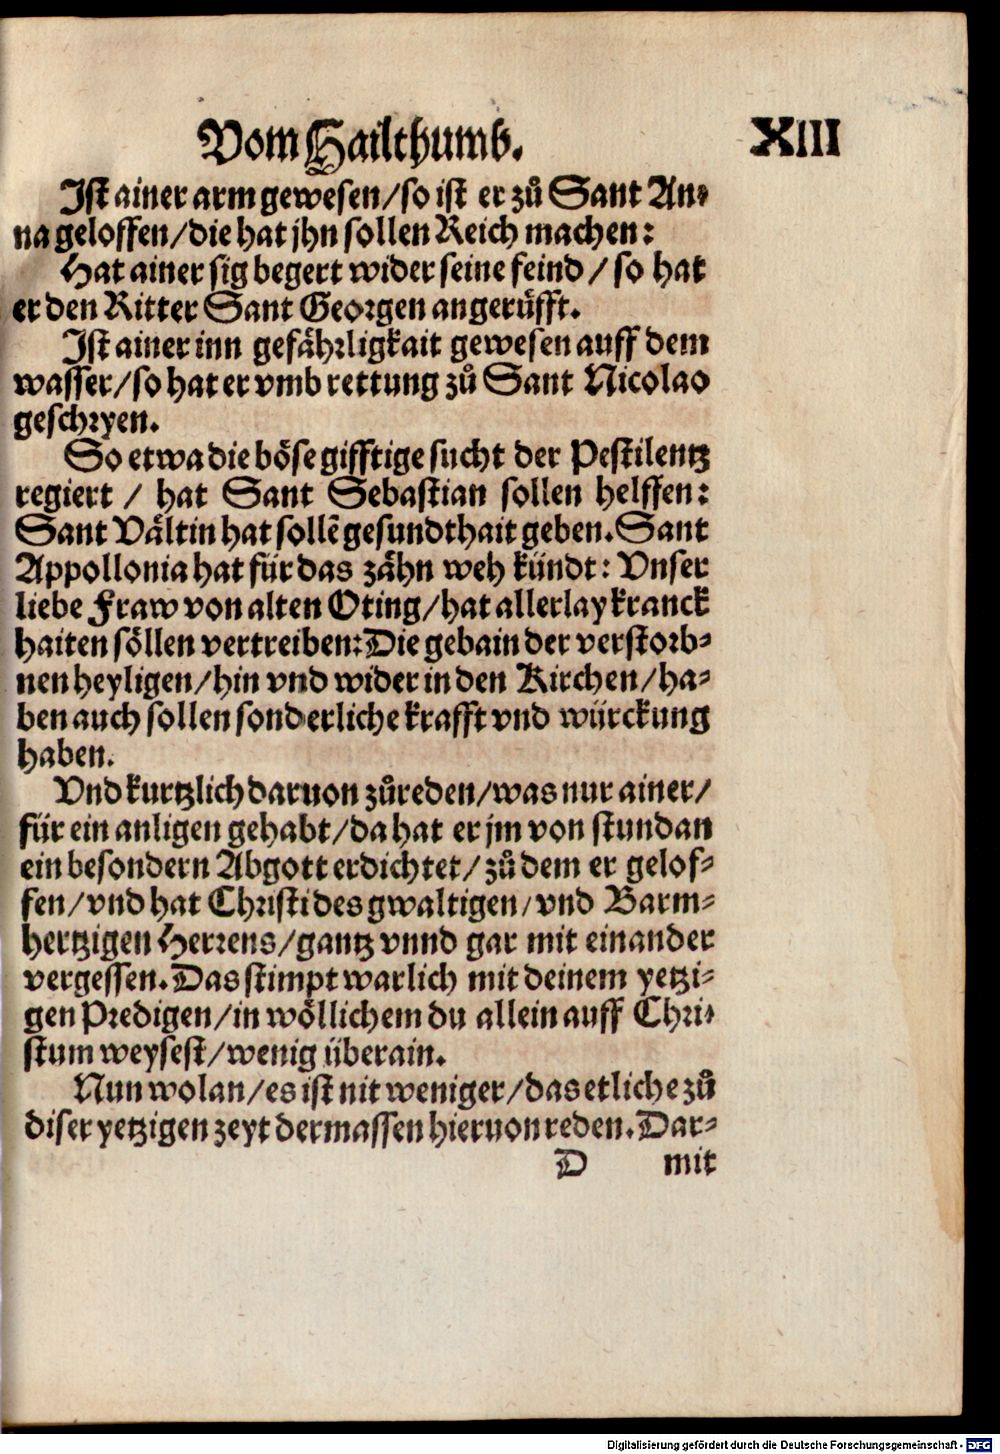 Vom Hailthumb. XIII
Ist ainer arm gewesen/so ist er zů Sant An-
na geloffen/die hat jhn sollen Reich machen:
Hat ainer sig begert wider seine feind / so hat
er den Ritter Sant Georgen angerüfft.
Ist ainer inn gefährligkait gewesen auff dem
wasser/so hat er vmb rettung zů Sant Nicolao
geschryen.
So etwa die böse gifftige sucht der Pestilentz
regiert / hat Sant Sebastian sollen helffen:
Sant Vältin hat sollē gesundthait geben. Sant
Appollonia hat für das zähn weh kündt: Vnser
liebe Fraw von alten Oting/hat allerlay kranck
haiten söllen vertreiben: Die gebain der verstorb-
nen heyligen/hin vnd wider in den Kirchen/ha-
ben auch sollen sonderliche krafft vnd würckung
haben.
Vnd kurtzlich daruon zůreden/was nur ainer/
für ein anligen gehabt/da hat er jm von stundan
ein besondern Abgott erdichtet/zů dem er gelof-
fen/vnd hat Christi des gwaltigen/vnd Barm-
hertzigen Herrens/gantz vnnd gar mit einander
vergessen. Das stimpt warlich mit deinem yetzi-
gen Predigen/in wöllichem du allein auff Chri-
stum weysest/wenig überain.
Nun wolan/es ist nit weniger/das etliche zů
diser yetzigen zeyt dermassen hieruon reden. Dar-
D mit
Digitalisierung gefördert durch die Deutsche Forschungsgemeinschaft - DFG